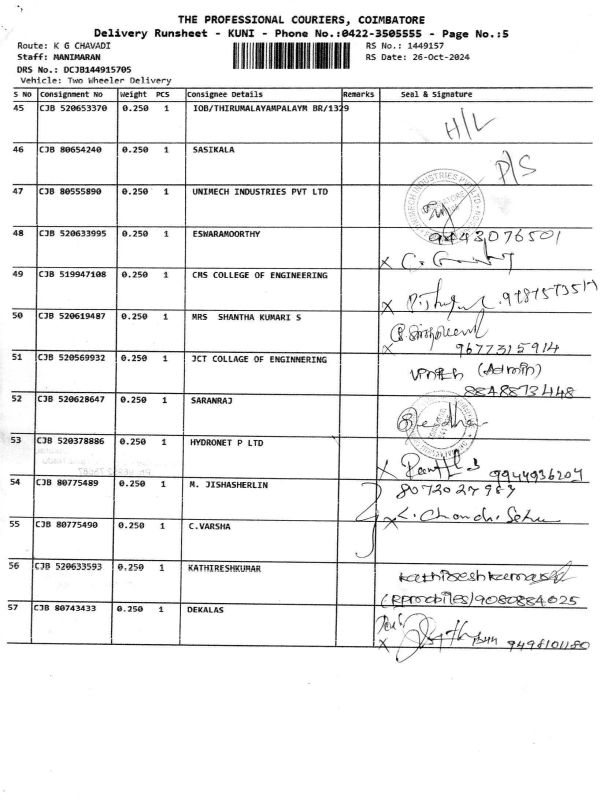 THE PROFESSIONAL COURIERS, COIMBATORE
Delivery Runsheet - KUNI - Phone No.:0422-3505555 - Page No.:5
Route: K G CHAVADI
RS No.: 1449157
Staff: MANIMARAN
RS Date: 26-Oct-2024
DRS No.: DCJB144915705
Vehicle: Two Wheeler Delivery
S No Consignment No Weight PCS Consignee Details Remarks Seal & Signature
45 CJB 520653370 0.250 1 IOB/THIRUMALAYAMPALAYM BR/1329
H/L
46 CJB 80654240 0.250 1 SASIKALA
P/S
47 CJB 80555890 0.250 1 UNIMECH INDUSTRIES PVT LTD
48 CJB 520633995 0.250 1 ESWARAMOORTHY
9443076501
X
49 CJB 519947108 0.250 1 CMS COLLEGE OF ENGINEERING
X
50 CJB 520619487 0.250 1 MRS SHANTHA KUMARI S
X 9677315914
51 CJB 520569932 0.250 1 JCT COLLAGE OF ENGINNERING
(Admin)
8848873448
52 CJB 520628647 0.250 1 SARANRAJ
53 CJB 520378886 0.250 1 HYDRONET P LTD
X 9944936204
54 CJB 80775489 0.250 1 M. JISHASHERLIN
55 CJB 80775490 0.250 1 C.VARSHA
56 CJB 520633593 0.250 1 KATHIRESHKUMAR
9080884025
57 CJB 80743433 0.250 1 DEKALAS
X 9498101180